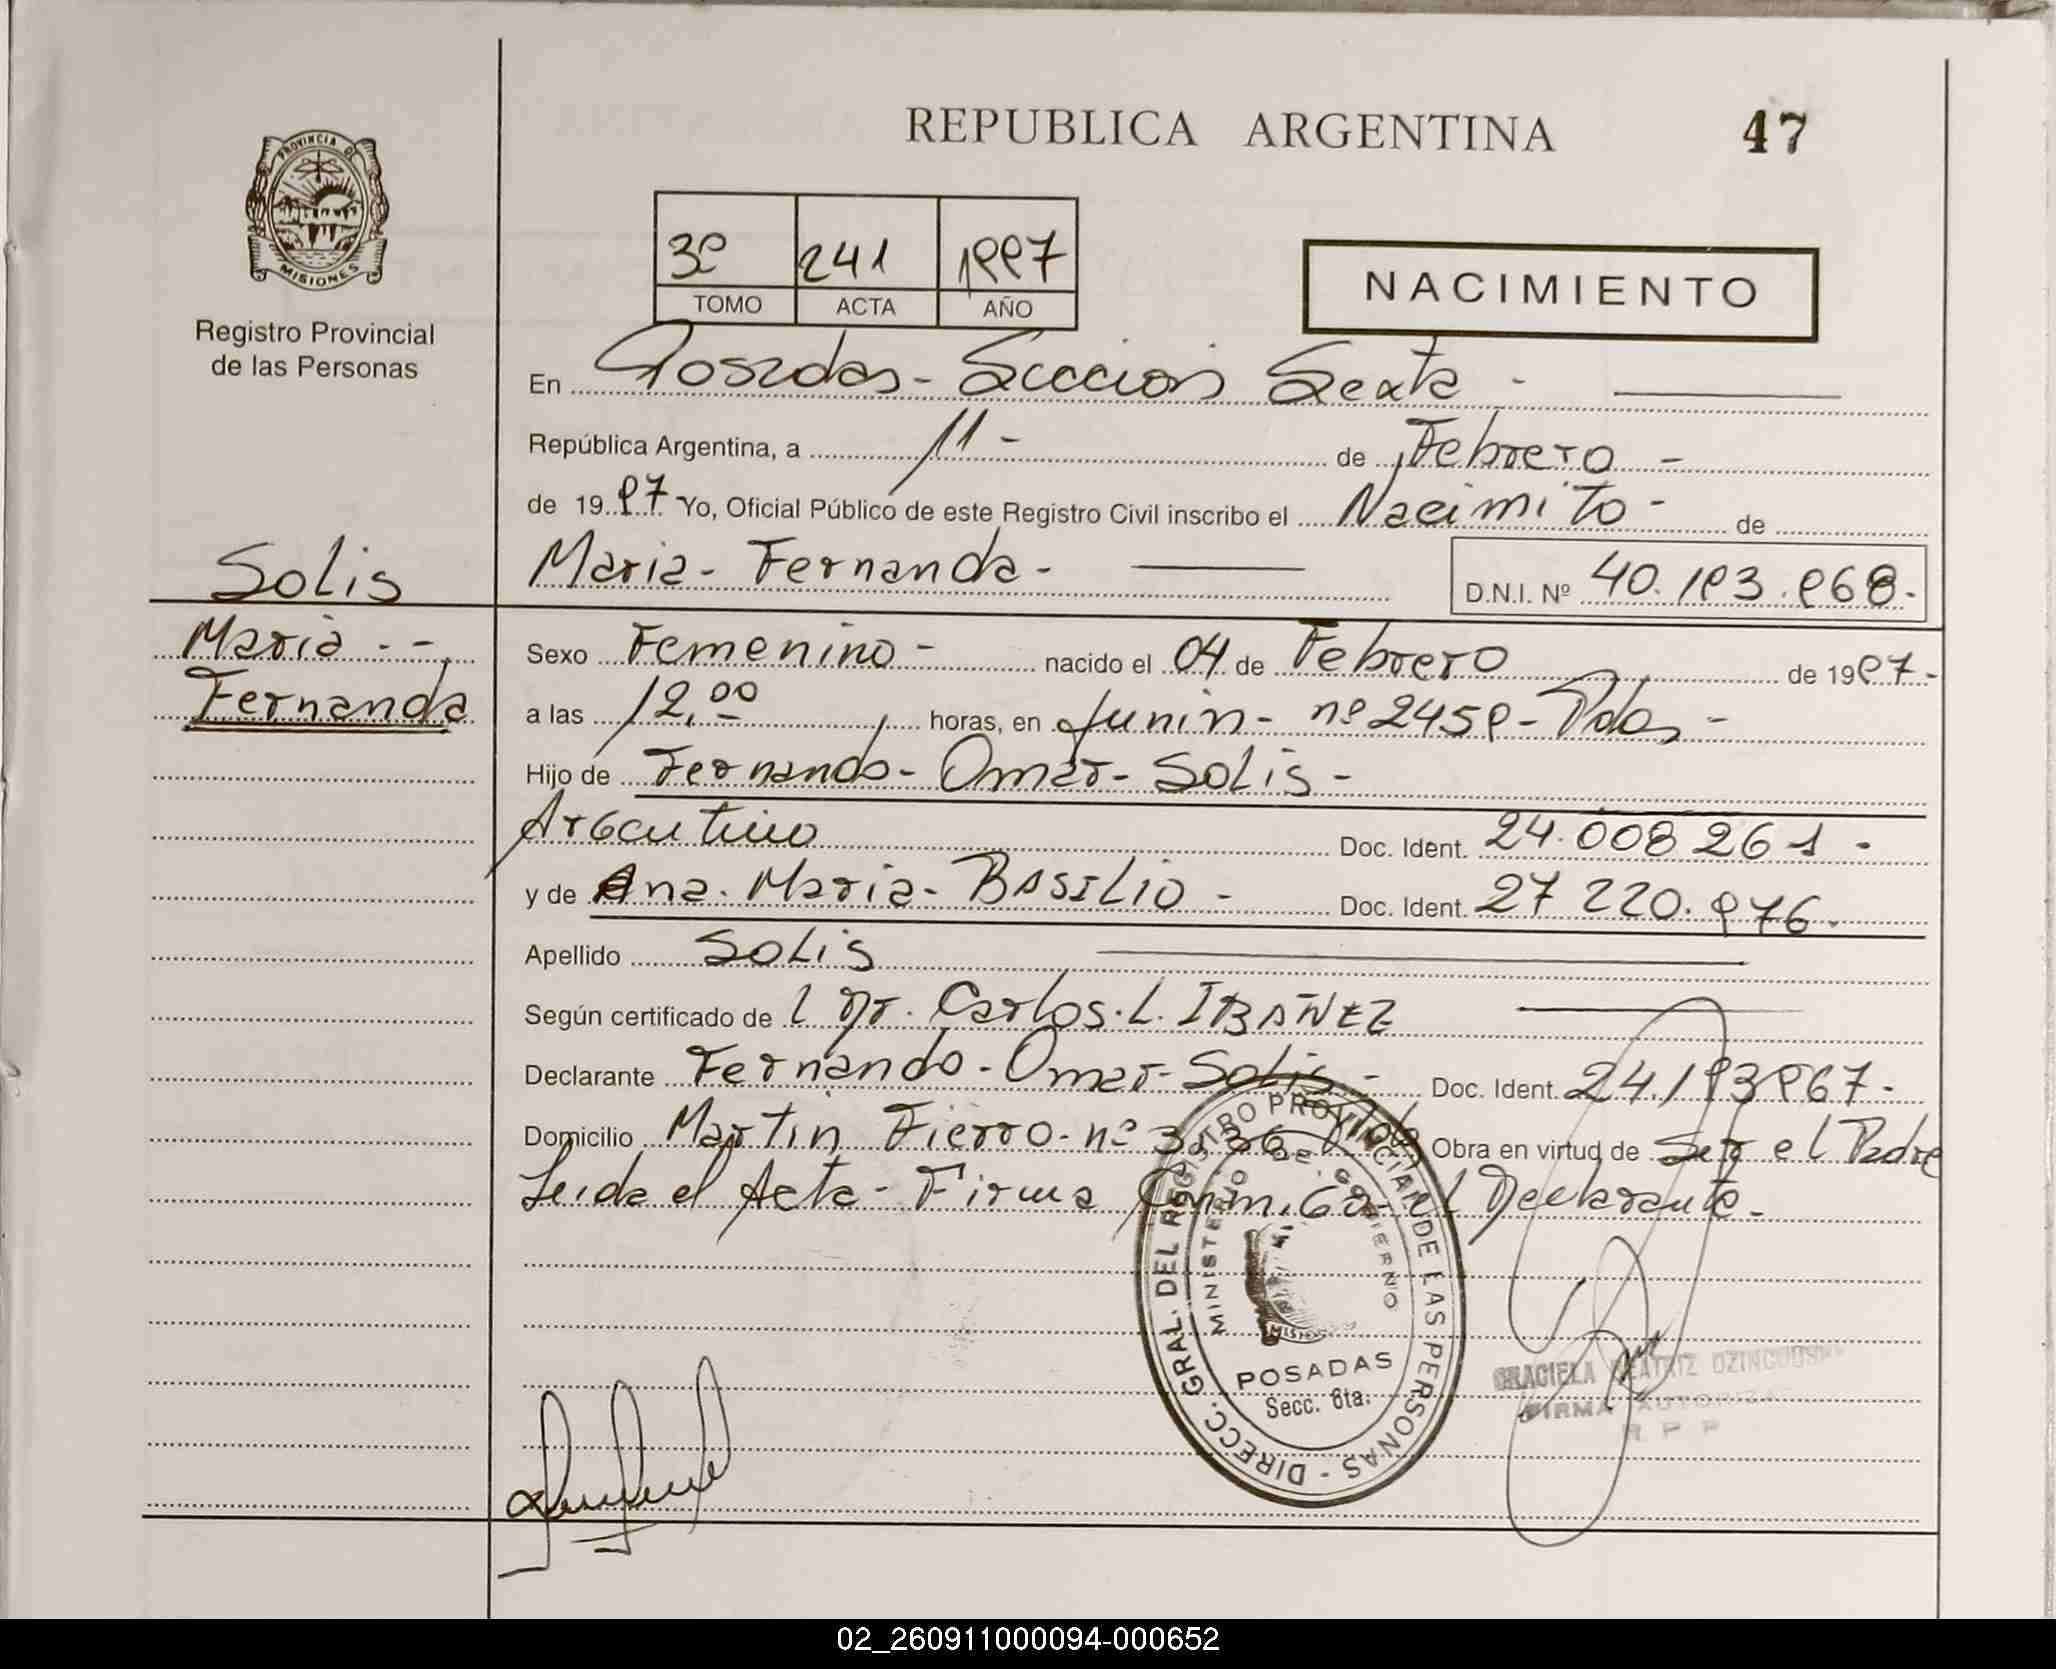 REPUBLICA ARGENTINA 47
PROVINCIA DE
MISIONES
Registro Provincial
de las Personas
3º 241 1997
TOMO ACTA AÑO
NACIMIENTO
En Posadas - Sección Sexta -
República Argentina, a 11 - de Febrero -
de 1997 Yo, Oficial Público de este Registro Civil inscribo el Nacimito - de
Maria - Fernanda - D.N.I. Nº 40.193.968.-
Solis
Maria - -
Fernanda
Sexo Femenino - nacido el 04 de Febrero de 1997.-
a las 12,00 horas, en Junin - nº 2459 - Pdas -
Hijo de Fernando - Omar - Solis -
Argentino Doc. Ident. 24.008 261 -
y de Ana - Maria - BASILIO - Doc. Ident. 27 220.976.-
Apellido SOLIS
Según certificado de l Dr. Carlos. L. IBAÑEZ
Declarante Fernando - Omar - Solis - Doc. Ident. 24.193967.-
Domicilio Martin Fierro - nº 3636 Obra en virtud de Ser el Padre
Leida el Acta - Firma Conmigo el Declarante -
DIRECC. GRAL. DEL REGISTRO PROVINCIAL DE LAS PERSONAS -
MINISTERIO DE GOBIERNO
POSADAS
Secc. 6ta.
GRACIELA BEATRIZ
FIRMA AUTORIZADA
R P P
02_260911000094-000652